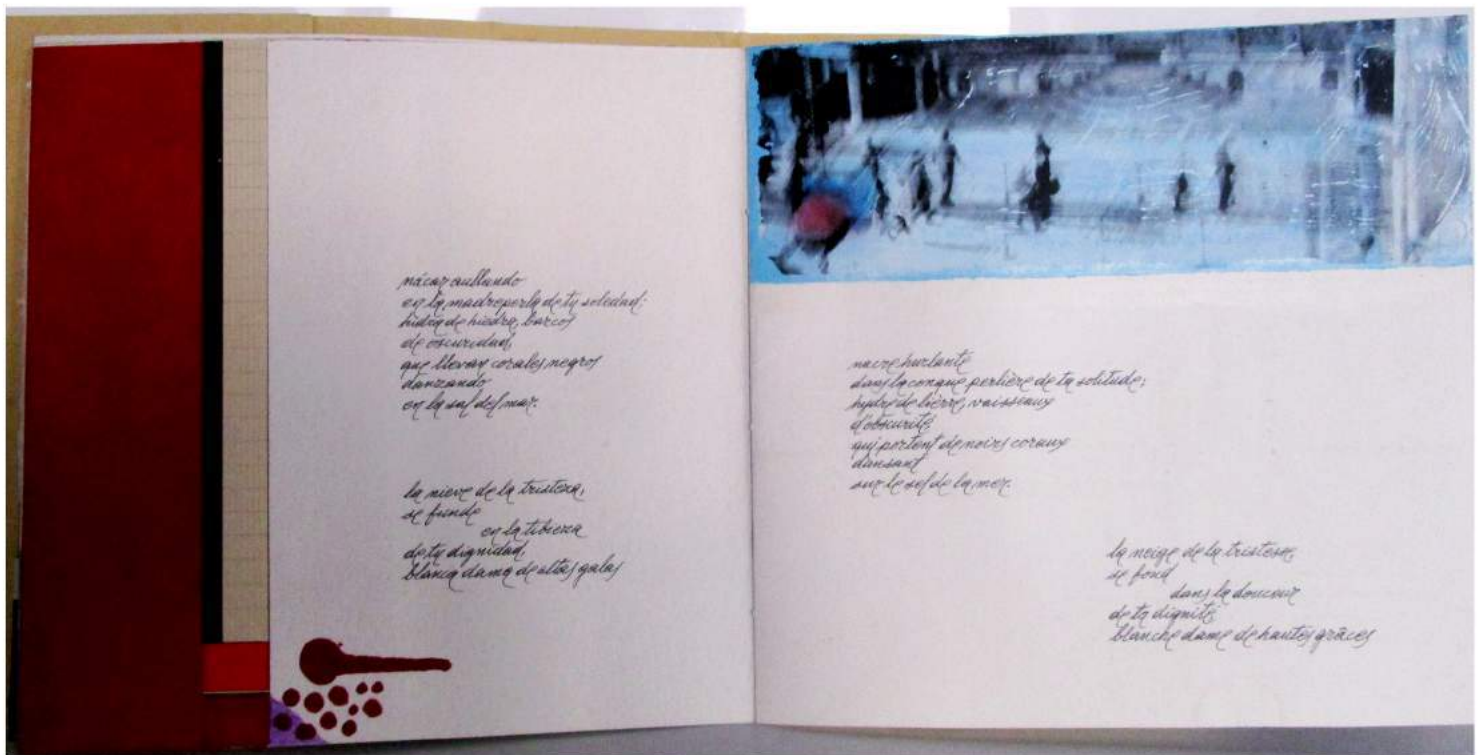 nácar aullando
en la madreperla de tu soledad;
hidra de hiedra, barcos
de oscuridad,
que llevan corales negros
danzando
en la sal del mar.
la nieve de la tristeza,
se funde
en la tibieza
de tu dignidad,
blanca dama de altas galas
nacre hurlante
dans la conque perlière de ta solitude;
hydre de lierre, vaisseaux
d'obscurité
qui portent de noirs coraux
dansant
sur le sel de la mer.
la neige de la tristesse,
se fond
dans la douceur
de ta dignité,
blanche dame de hautes grâces